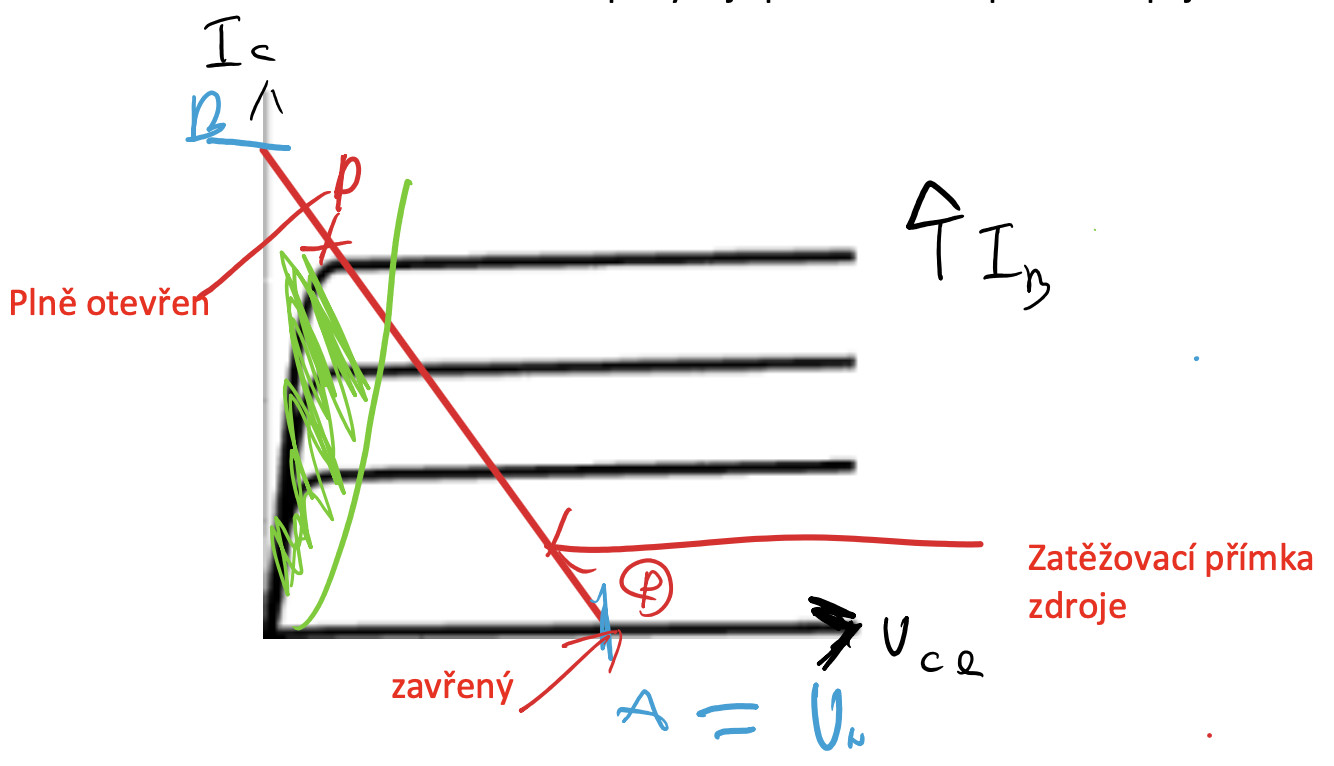 Ic
B
P
Plně otevřen
IB
Zatěžovací přímka
zdroje
P
UCE
zavřený
A = UN